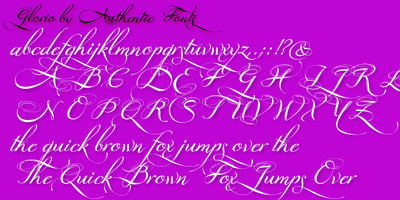 Glorio by Authentic Fontz
abcdefghijklmnopqrstuvwxyz.,:;!?&
A B C D E F G H I J K L
N O P Q R S T U V W X Y Z
the quick brown fox jumps over the
The Quick Brown Fox Jumps Over